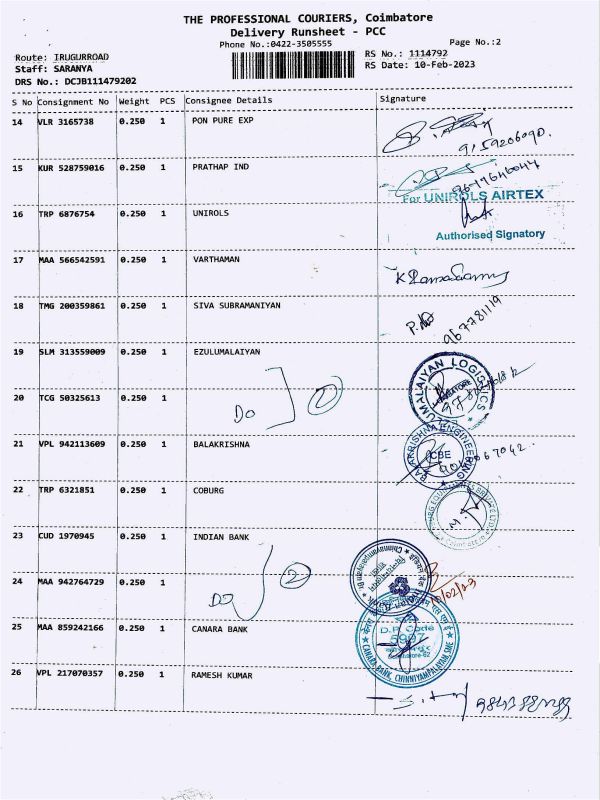 THE PROFESSIONAL COURIERS, Coimbatore
Delivery Runsheet - PCC
Phone No.:0422-3505555
Page No.:2
Route: IRUGURROAD
RS No.: 1114792
Staff: SARANYA
RS Date: 10-Feb-2023
DRS No.: DCJB111479202
S No Consignment No Weight PCS Consignee Details Signature
14 VLR 3165738 0.250 1 PON PURE EXP
15 KUR 528759016 0.250 1 PRATHAP IND
For UNIROLS AIRTEX
16 TRP 6876754 0.250 1 UNIROLS
Authorised Signatory
17 MAA 566542591 0.250 1 VARTHAMAN
K Ramasamy
18 TMG 200359861 0.250 1 SIVA SUBRAMANIYAN
19 SLM 313559009 0.250 1 EZULUMALAIYAN
20 TCG 50325613 0.250 1
DO 2
21 VPL 942113609 0.250 1 BALAKRISHNA
BALAKRISHNA ENGINEERING
CBE
22 TRP 6321851 0.250 1 COBURG
23 CUD 1970945 0.250 1 INDIAN BANK
24 MAA 942764729 0.250 1
DO 2
25 MAA 859242166 0.250 1 CANARA BANK
D.P. Code
5997
CANARA BANK, CHINNIYAMPALAYAM SME
26 VPL 217070357 0.250 1 RAMESH KUMAR